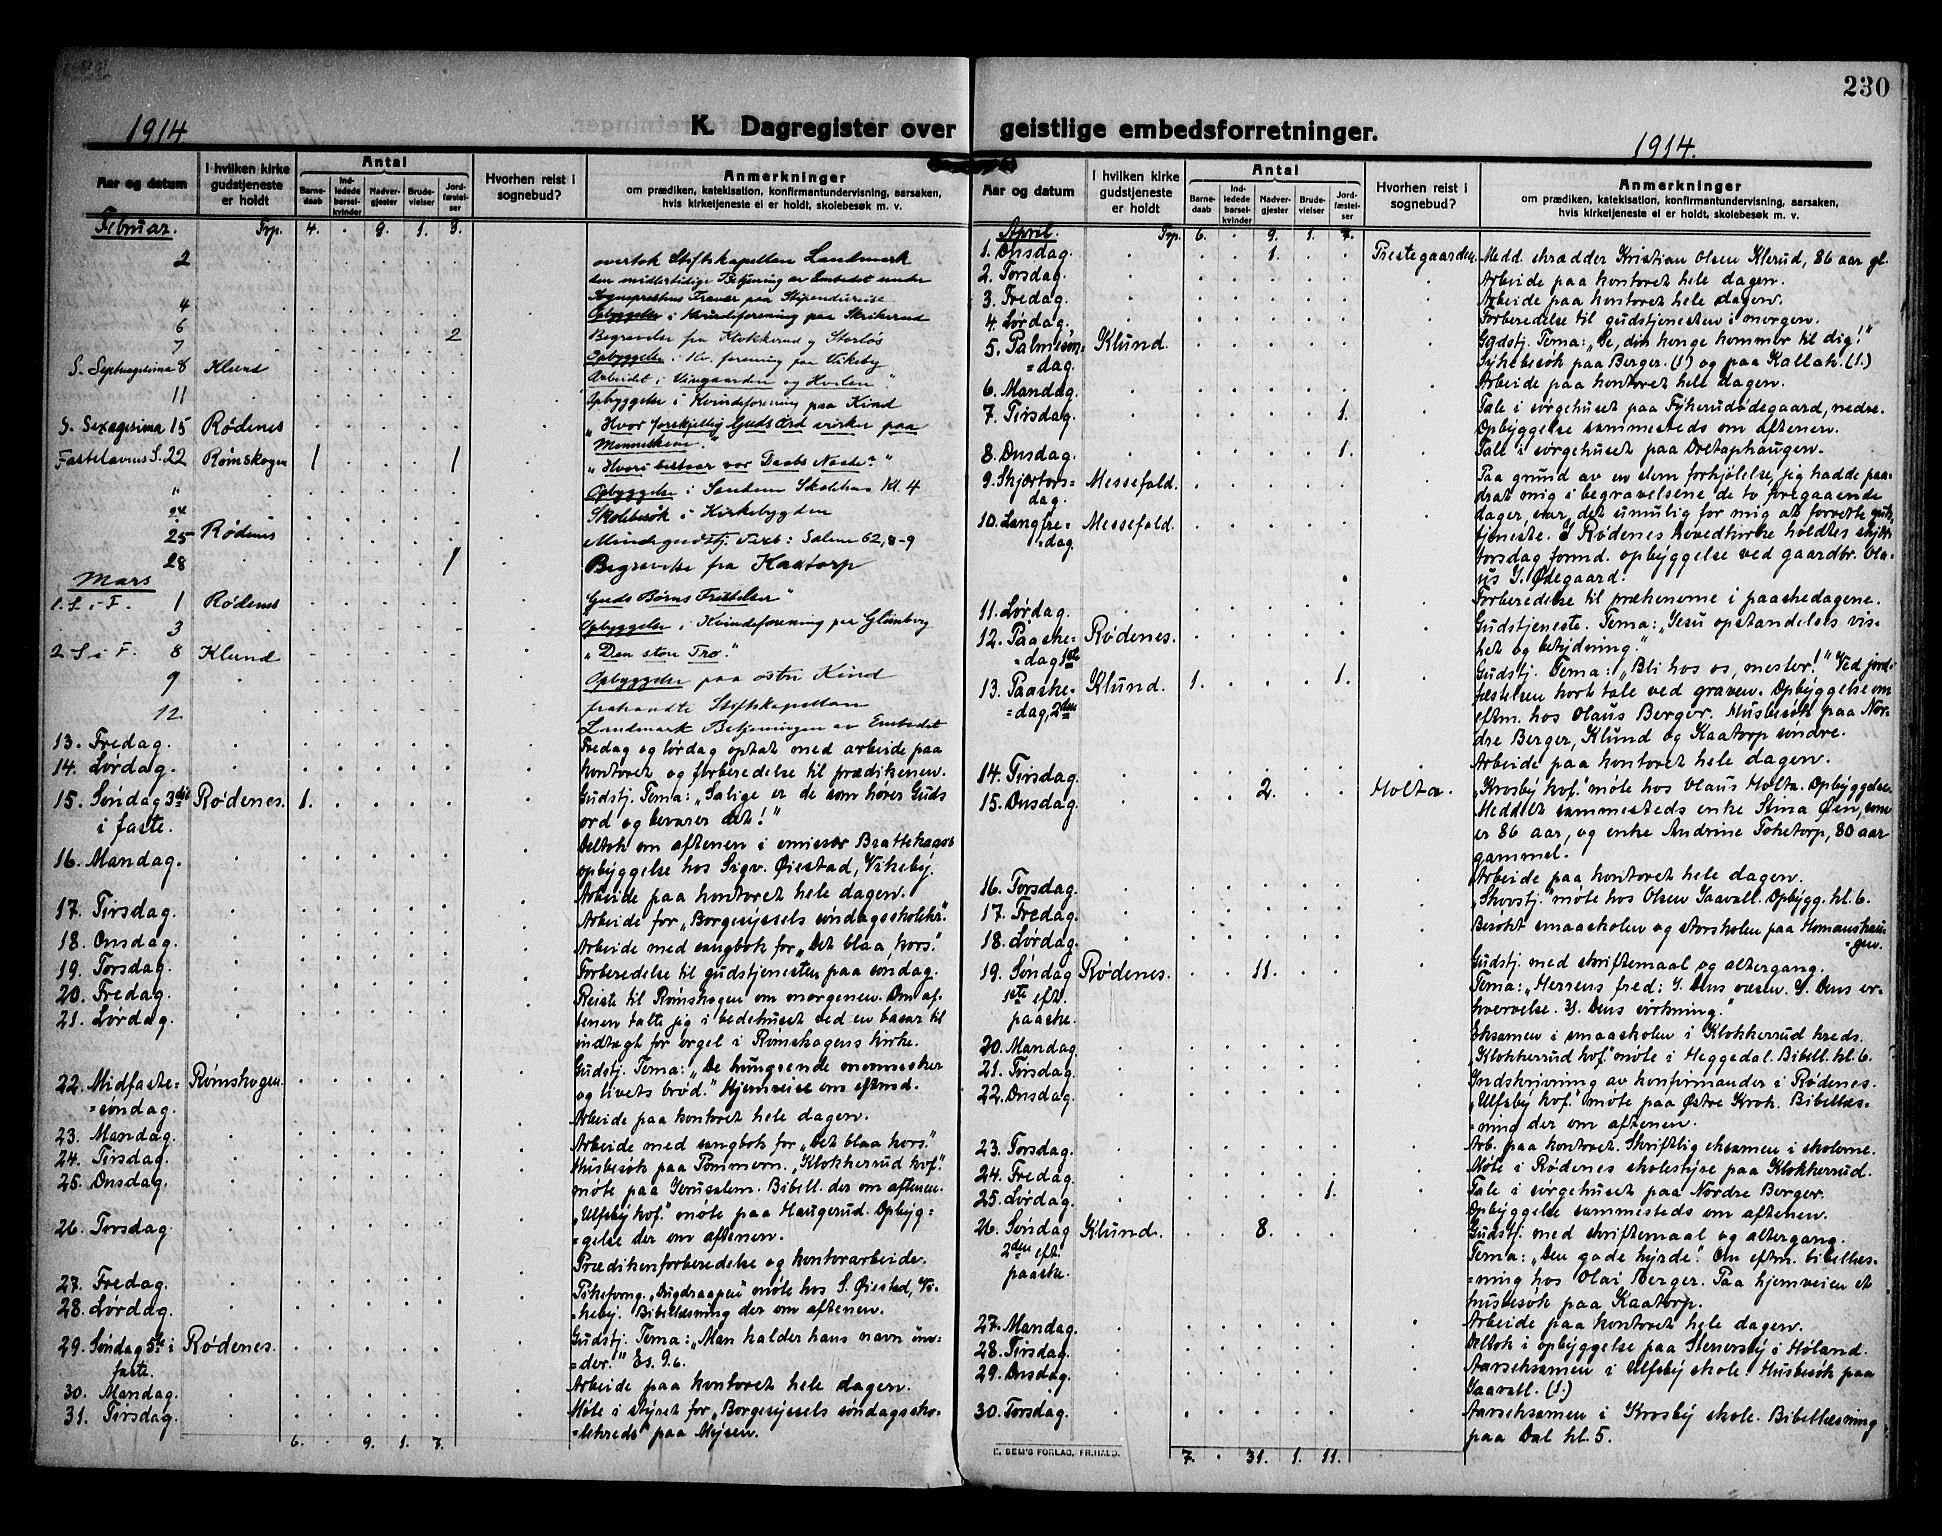 230
1914.
K. Dagregister over
Aar og datum
I hvilken kirke gudstjeneste er holdt
Antal
Barnedaab
Indledede barselkvinder
Nadvergjester
Brudevielser
Jordfæstelser
Hvorhen reist i sognebud?
Anmerkninger
om prædiken, katekisation, konfirmantundervisning, aarsaken,
hvis kirketjeneste ei er holdt, skolebesøk m. v.
Februar. Trp. 4. . 9. 1. 3.
2 overtok Stiftskapellan Landmark
den midlertidige Betjening av Embedet under
Sogneprestens Fravær paa Stipendiereise
4 Opbyggelse i Kvindeforening paa Skrikerud
6 2 Begravelse fra Klokkerud og Storløs
7 Opbyggelse i Kv. forening paa Vikeby
S. Septuagesima 8 Klund Arbeidet i Vingaarden og Hvilen"
11 Opbyggelse i Kvindeforening paa Kind
S. Sexagesima 15 Rødenes "Hvor forskjellig Guds Ord virker paa
Menneskene."
Fastelavns S. 22 Rømskogen 1 1 "Hvori bestaar vor Daabs Naade?"
" Opbyggelse i Sandem Skolehus Kl. 4
24 Skolebesøk i Kirkebygden
25 Rødenes Mindegudstj. Text: Salme 62,8-9
28 1 Begravelse fra Kaatorp
Mars
1. S. i F. 1 Rødenes Guds Børns Fristelser"
3 Opbyggelse i Kvindeforening paa Glimborg
2 S. i F. 8 Klund "Den store Tro."
9 Opbyggelse paa østre Kind
12. fratraadte Stiftskapellan
Landmark Betjeningen av Embedet
13. Fredag. Fredag og lørdag optat med arbeide paa
14. Lørdag. kontoret og forberedelse til prædikenen.
15. Søndag 3die Rødenes. 1. Gudstj. Tema: „Salige er de som hører Guds
i faste. ord og bevarer det!"
16. Mandag. Deltok om aftenen i emissær Brattekaas's
opbyggelse hos Sigv. Øiestad, Vikeby.
17. Tirsdag. Arbeide paa kontoret hele dagen.
18. Onsdag. Arbeide for „Borgesyssels søndagsskolekr."
19. Torsdag. Arbeide med sangbok for „Det blaa kors."
20. Fredag. Forberedelse til gudstjenesten paa søndag.
21. Lørdag. Reiste til Rømskogen om morgenen. Om af-
tenen talte jeg i bedehuset ved en basar til
indtægt for orgel i Rømskogens kirke.
22. Midfaste= Rømskogen. Gudstj. Tema: „De hungrende mennesker
=søndag. og livets brød." Hjemreise om eftmd.
23. Mandag. Arbeide paa kontoret hele dagen.
24. Tirsdag. Arbeide med sangbok for „Det blaa kors."
25. Onsdag. Husbesøk paa Pommern. „Klokkerrud kvf."
møte paa Jerusalem. Bibell. der om aftenen.
26. Torsdag „Ulfsby kvf." møte paa Haugerud. Opbyg=
=gelse der om aftenen.
27. Fredag. Prædikenforberedelse og kontorarbeide.
28. Lørdag. Pikeforng. „Dugdraapen" møte hos S. Øiestad, Vi=
=keby. Bibellæsning der om aftenen.
29. Søndag 5te i Rødenes. Gudstj. Tema: „Man kalder hans navn un=
faste. =der." Es. 9.6.
30. Mandag. Arbeide paa kontoret hele dagen.
31. Tirsdag. Møte i styret for „Borgesyssels søndagssko=
=lekreds" paa Mysen.
6. . 9. 1. 7.
geistlige embedsforretninger.
1914.
Aar og datum
I hvilken kirke gudstjeneste er holdt
Antal
Barnedaab
Indledede barselkvinder
Nadvergjester
Brudevielser
Jordfæstelser
Hvorhen reist i sognebud?
Anmerkninger
om prædiken, katekisation, konfirmantundervisning, aarsaken,
hvis kirketjeneste ei er holdt, skolebesøk m. v.
April. Trp. 6. . 9. 1. 7.
1. Onsdag. 1. Prestegaarden. Medd. skrædder Kristian Olsen Klerud, 86 aar gl.
2. Torsdag. Arbeide paa kontoret hele dagen.
3. Fredag. Arbeide paa kontoret hele dagen.
4. Lørdag. Forberedelse til gudstjenesten i morgen.
5. Palmesøn= Klund. Gudstj. Tema: „Se, din konge kommer til dig!"
=dag. Sykebesøk paa Berger. (1) og paa Kallak. (1.)
6. Mandag. Arbeide paa kontoret hele dagen.
7. Tirsdag. 1. Tale i sørgehuset paa Fykerudødegaard, nedre.
Opbyggelse sammesteds om aftenen.
8. Onsdag. 1. Tale i sørgehuset paa Dretaphaugen.
9. Skjærtors= Messefald. Paa grund av en slem forkjølelse, jeg hadde paa-
dag. drat mig i begravelsene de to foregaaende
10. Langfre= Messefald. dager, var det umulig for mig at forrette guds-
=dag. tjeneste. I Rødenes hovedkirke holdtes skjær-
torsdag formd. opbyggelse ved gaardbr. Ola-
us I. Ødegaard.
11. Lørdag. Forberedelse til prækenerne i paaskedagene.
12. Paaske= Rødenes. Gudstjeneste. Tema: „Jesu opstandelses vis-
=dag 1ste het og betydning."
13. Paaske= Klund. 1. 1. Gudstj. Tema: „Bli hos os, mester!" Ved jord-
=dag, 2den fæstelsen kort tale ved graven. Opbyggelse om
eftm. hos Olaus Berger. Husbesøk paa Nor-
dre Berger, Klund og Kaatorp søndre.
14. Tirsdag. Arbeide paa kontoret hele dagen.
15. Onsdag. 2. Holta. „Krosby kvf." møte hos Olaus Holta. Opbyggelse.
Meddelt sammesteds enke Stina Øien, som
er 86 aar, og enke Andrine Toketorp, 80 aar
gammel.
16. Torsdag. Arbeide paa kontoret hele dagen.
17. Fredag. „Skovstj." møte hos Olsen Taavall. Opbygg. kl. 6.
18. Lørdag. Besøkt smaaskolen og storskolen paa Homanshau-
=gen.
19. Søndag Rødenes. 11. Gudstj. med skriftemaal og altergang.
1ste eft. Tema: „Herrens fred: 1. Dens væsen. 2. Dens er-
paaske. hvervelse. 3. Dens virkning."
20. Mandag. Eksamen i smaaskolen i Klokkerrud kreds.
21. Tirsdag. „Klokkerrud kvf." møte i Heggedal. Bibell. kl. 6.
22. Onsdag. Indskrivning av konfirmander i Rødenes.
„Ulfsby kvf." møte paa Østre Krok. Bibellæs-
=ning der om aftenen.
23. Torsdag. Arb. paa kontoret. Skriftlig eksamen i skolerne.
24. Fredag. Møte i Rødenes skolestyre paa Klokkerrud.
25. Lørdag. 1. Tale i sørgehuset paa Nordre Berger.
Opbyggelse sammesteds om aftenen.
26. Søndag Klund. 8. Gudstj. med skriftemaal og altergang.
2den eft. Tema: „Den gode hyrde." Om eftm. bibellæs=
paaske. =ning hos Olai Berger. Paa hjemveien et
husbesøk paa Kaatorp.
27. Mandag. Arbeide paa kontoret hele dagen.
28. Tirsdag. Deltok i opbyggelse paa Stenersby i Høland.
29. Onsdag. Aarseksamen i Ulfsby skole. Husbesøk paa
Taavall. (1.)
30. Torsdag. Aarseksamen i Krosby skole. Bibellæsning
paa Dal kl. 5.
E. SEM'S FORLAG, FR.HALD.
7. . 31. 1. 11.